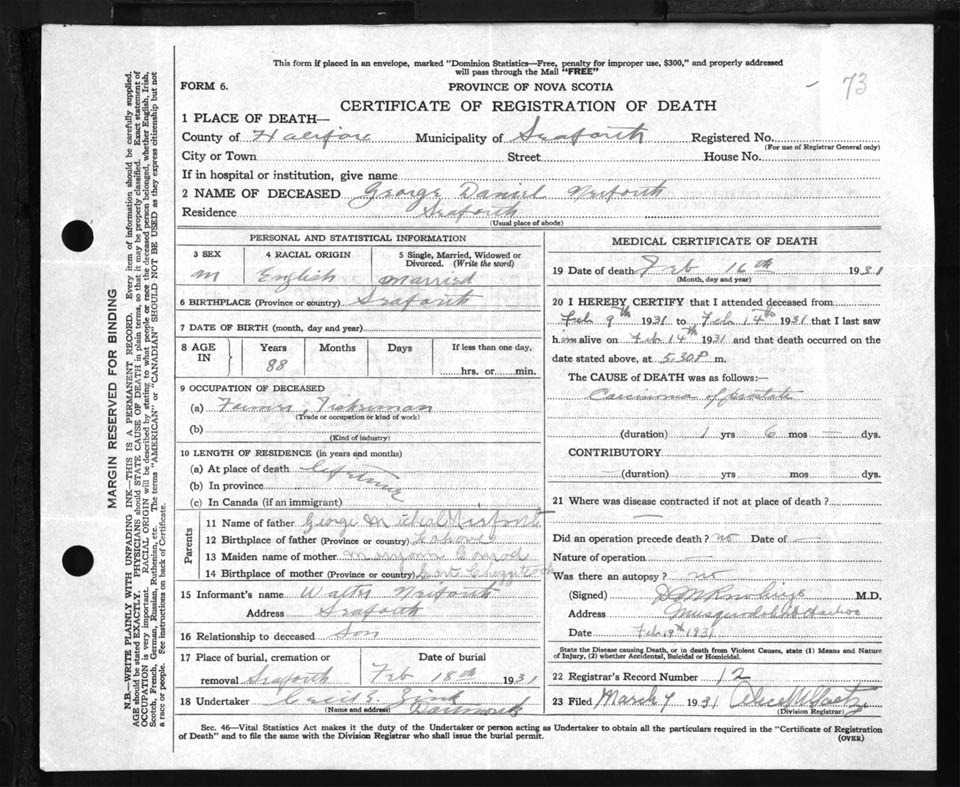 This form if placed in an envelope, marked "Dominion Statistics—Free, penalty for improper use, $300," and properly addressed
will pass through the Mail "FREE"
FORM 6.
PROVINCE OF NOVA SCOTIA
73
CERTIFICATE OF REGISTRATION OF DEATH
1 PLACE OF DEATH—
County of Halifax Municipality of Seaforth Registered No.
(For use of Registrar General only)
City or Town Street House No.
If in hospital or institution, give name
2 NAME OF DECEASED George Daniel
Residence Seaforth
(Usual place of abode)
PERSONAL AND STATISTICAL INFORMATION
3 SEX 4 RACIAL ORIGIN 5 Single, Married, Widowed or
Divorced. (Write the word)
M English married
6 BIRTHPLACE (Province or country) Seaforth
7 DATE OF BIRTH (month, day and year)
8 AGE IN Years Months Days If less than one day,
88 hrs. or min.
9 OCCUPATION OF DECEASED
(a) Farmer, Fisherman
(Trade or occupation or kind of work)
(b)
(Kind of industry)
10 LENGTH OF RESIDENCE (in years and months)
(a) At place of death lifetime
(b) In province
(c) In Canada (if an immigrant)
Parents
11 Name of father George
12 Birthplace of father (Province or country)
13 Maiden name of mother Conrod
14 Birthplace of mother (Province or country)
15 Informant's name Walter
Address Seaforth
16 Relationship to deceased Son
17 Place of burial, cremation or Date of burial
removal Seaforth Feb 18th 1931
18 Undertaker Zink
(Name and address)
MEDICAL CERTIFICATE OF DEATH
19 Date of death Feb 16th 1931
(Month, day and year)
20 I HEREBY CERTIFY that I attended deceased from
Feb 9th 1931 to Feb 14th 1931 that I last saw
him alive on Feb 14th 1931 and that death occurred on the
date stated above, at 5.30 P m.
The CAUSE of DEATH was as follows:—
Carcinoma of prostate
(duration) 1 yrs 6 mos — dys.
CONTRIBUTORY
(duration) yrs mos dys.
21 Where was disease contracted if not at place of death?
—
Did an operation precede death? no Date of —
Nature of operation —
Was there an autopsy? no
(Signed) M.D.
Address Musquodoboit Harbor
Date Feb 19th 1931
State the Disease causing Death, or in death from Violent Causes, state (1) Means and Nature
of Injury, (2) whether Accidental, Suicidal or Homicidal.
22 Registrar's Record Number 12
23 Filed March 7 1931
(Division Registrar)
Sec. 46—Vital Statistics Act makes it the duty of the Undertaker or person acting as Undertaker to obtain all the particulars required in the "Certificate of Registration
of Death" and to file the same with the Division Registrar who shall issue the burial permit.
(OVER)
MARGIN RESERVED FOR BINDING
N.B.—WRITE PLAINLY WITH UNFADING INK—THIS IS A PERMANENT RECORD. Every item of information should be carefully supplied.
AGE should be stated EXACTLY. PHYSICIANS should STATE CAUSE OF DEATH in plain terms, so that it may be properly classified. Exact statement of
OCCUPATION is very important. RACIAL ORIGIN will be described by stating to what people or race the deceased person belonged, whether English, Irish,
Scotch, French, German, Russian, Ruthenian, etc. The terms "AMERICAN" or "CANADIAN" SHOULD NOT BE USED as they express citizenship but not
a race or people. See instructions on back of Certificate.